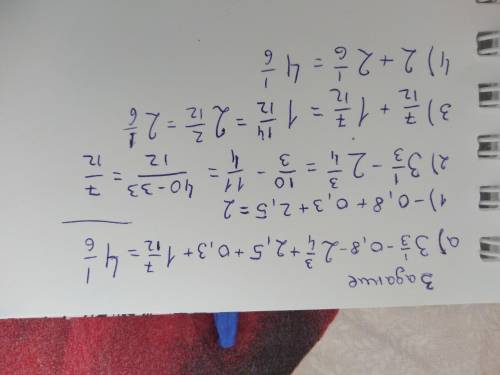 Задание
а) 3 1/3 - 0,8 - 2 3/4 + 2,5 + 0,3 + 1 7/12 = 4 1/6
1) -0,8 + 0,3 + 2,5 = 2
2) 3 1/3 - 2 3/4 = 10/3 - 11/4 = 40-33/12 = 7/12
3) 7/12 + 1 7/12 = 1 14/12 = 2 2/12 = 2 1/6
4) 2 + 2 1/6 = 4 1/6